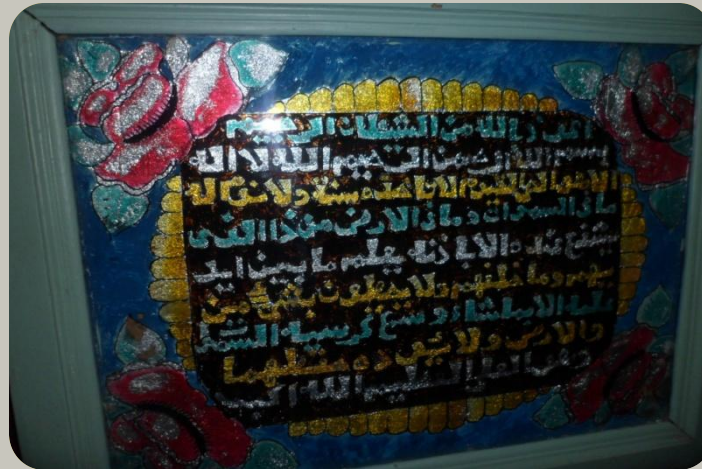 اعوذ بالله من الشيطان الرجيم
بسم الله الرحمن الرحيم الله لا اله
الا هو الحي القيوم لا تاخذه سنة ولا نوم له
ما في السموات وما في الارض من ذا الذي
يشفع عنده الا باذنه يعلم ما بين ايد
يهم وما خلفهم ولا يحيطون بشئ من
علمه الا بما شاء وسع كرسيه السمو
والارض ولا يئوده حفظهما
وهو العلي العظيم الله